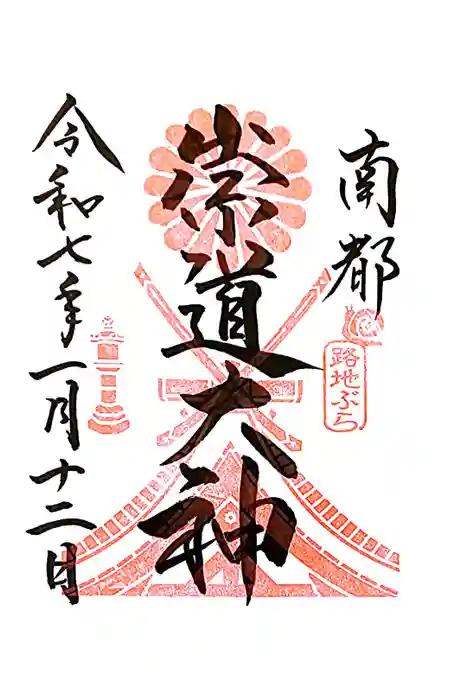 南都
路地ぶち
崇道大神
令和七年一月十二日